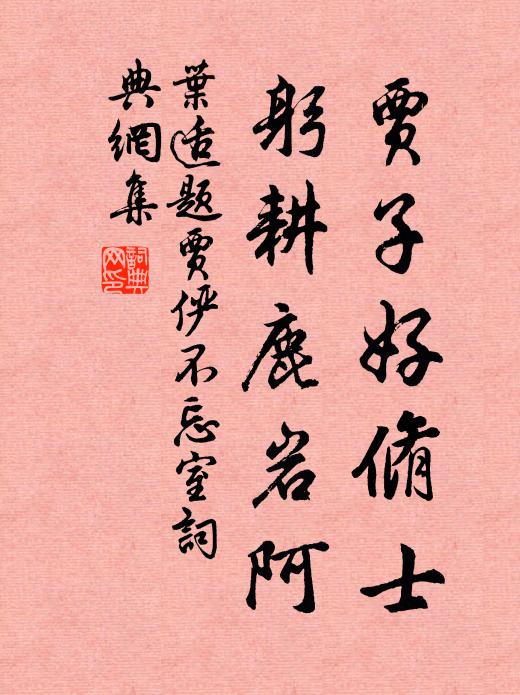 賈子好脩士
躬耕鹿岩阿
葉适題賈俨不忘室詞
典網集
詞典網印